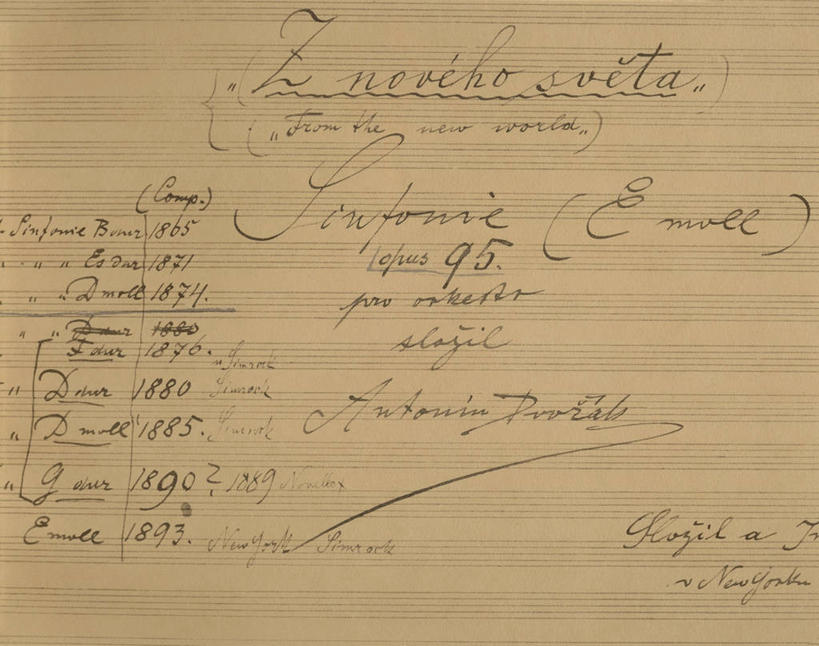 „(Z nového světa„)
(„From the new world„)
(Comp.)
Sinfonie (E moll)
Sinfonie B dur 1865
" " Es dur 1871
opus 95.
" " D moll 1874.
pro orkestr
" " D dur 1880
F dur 1876. Simrock
složil
" D dur 1880 Simrock
Antonín Dvořák
" D moll 1885. Simrock
" G dur 1890? 1889 Novello
E moll 1893. New York Simrock
Složil a In
v New Yorku